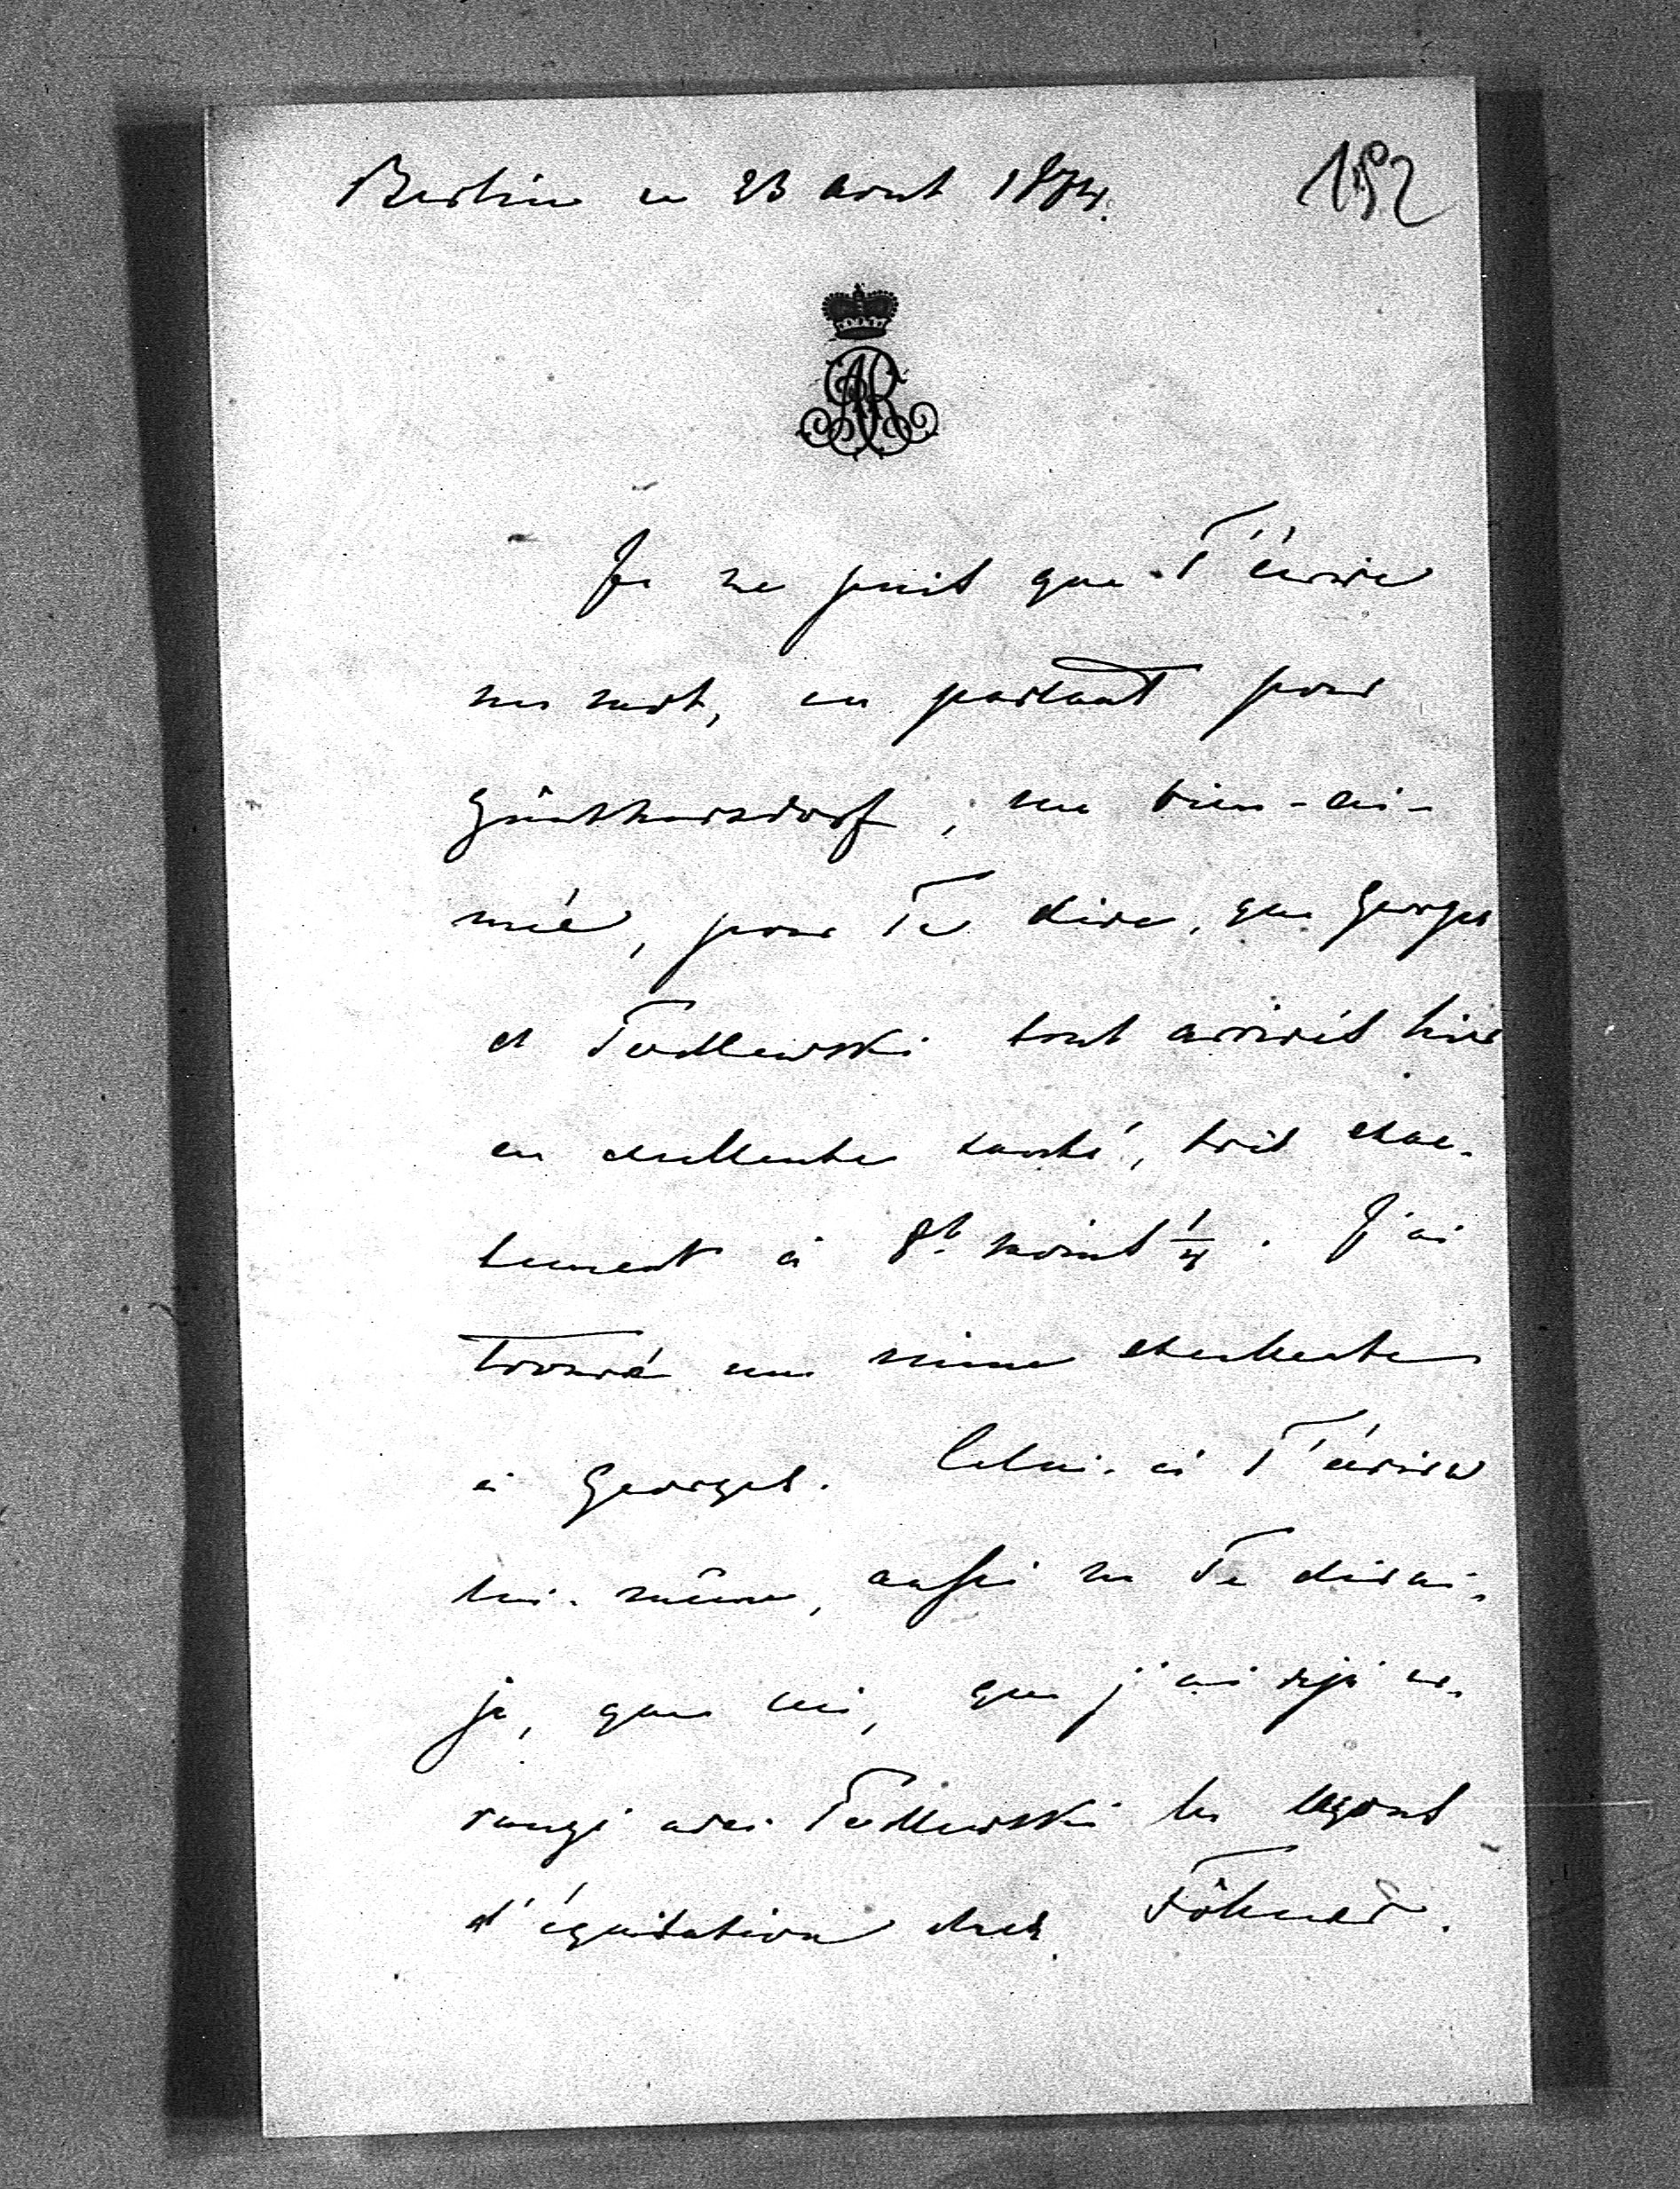 Berlin ce 23 aout 1874.
152
AR
Je ne puis que T'écrire
un mot, en partant pour
Günthersdorf, ma bien-ai-
mée, pour Te dire, que Georges
et sont arrivés hier
en excellente santé, très exac-
tement à 8h. moins 1/4. J'ai
trouvé une mine excellente
à Georges. Celui-ci T'écrira
lui-même, aussi ne Te dirai-
je, que ceci, que j'ai déjà ar-
rangé avec les leçons
d'équitation chez